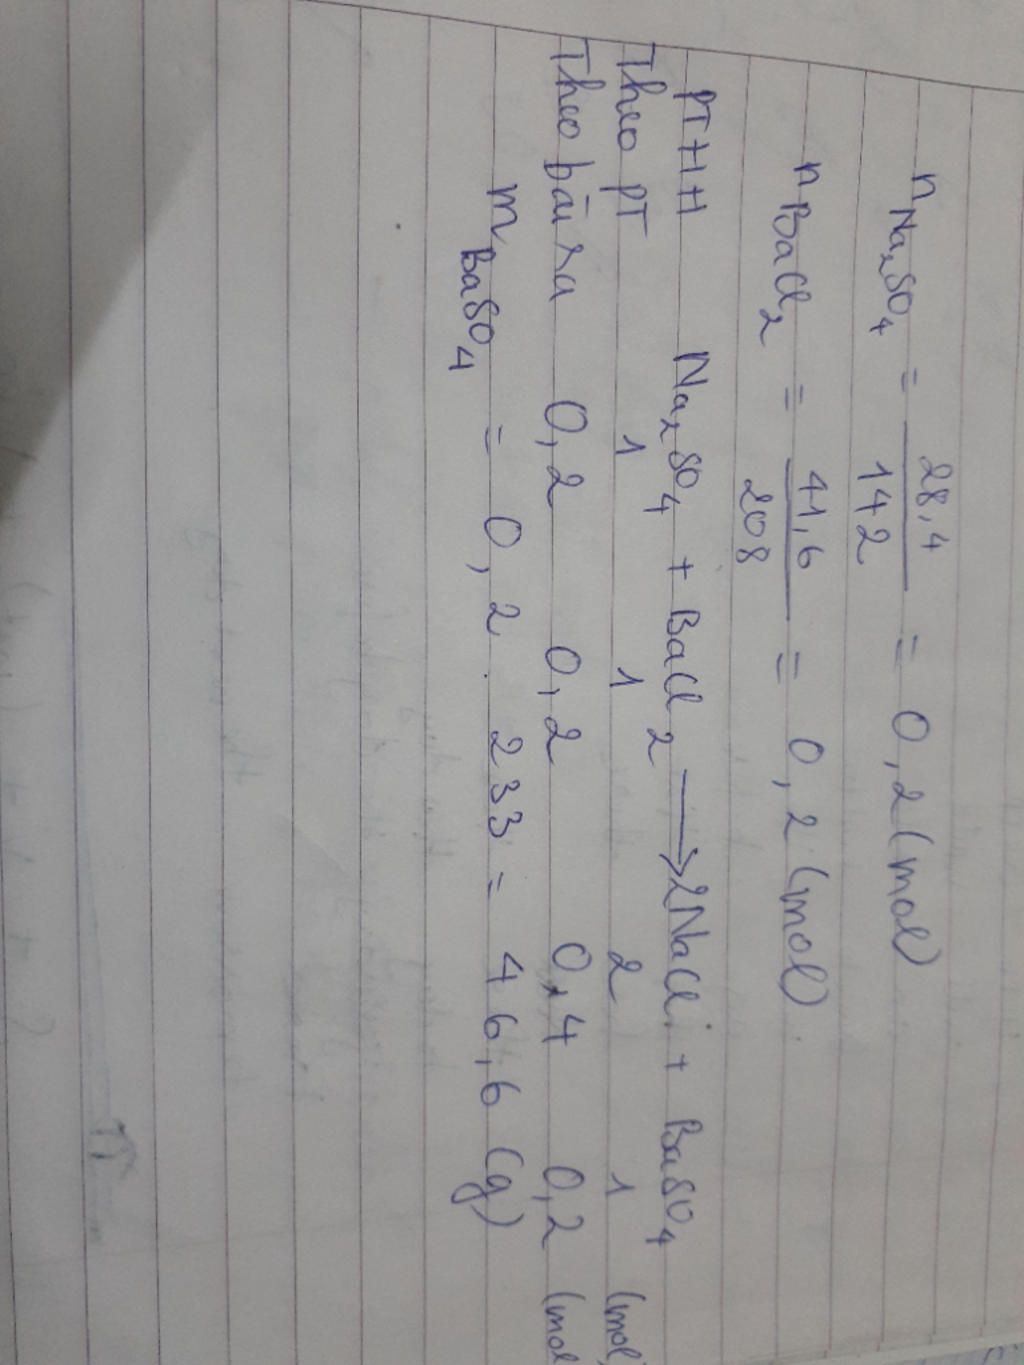 n Na₂SO₄ = 28,4 / 142 = 0,2 (mol)
n BaCl₂ = 41,6 / 208 = 0,2 (mol)
PTHH Na₂SO₄ + BaCl₂ → 2NaCl + BaSO₄
Theo PT 1 1 2 1 (mol)
Theo bài ra 0,2 0,2 0,4 0,2 (mol
m BaSO₄ = 0,2 . 233 = 46,6 (g)